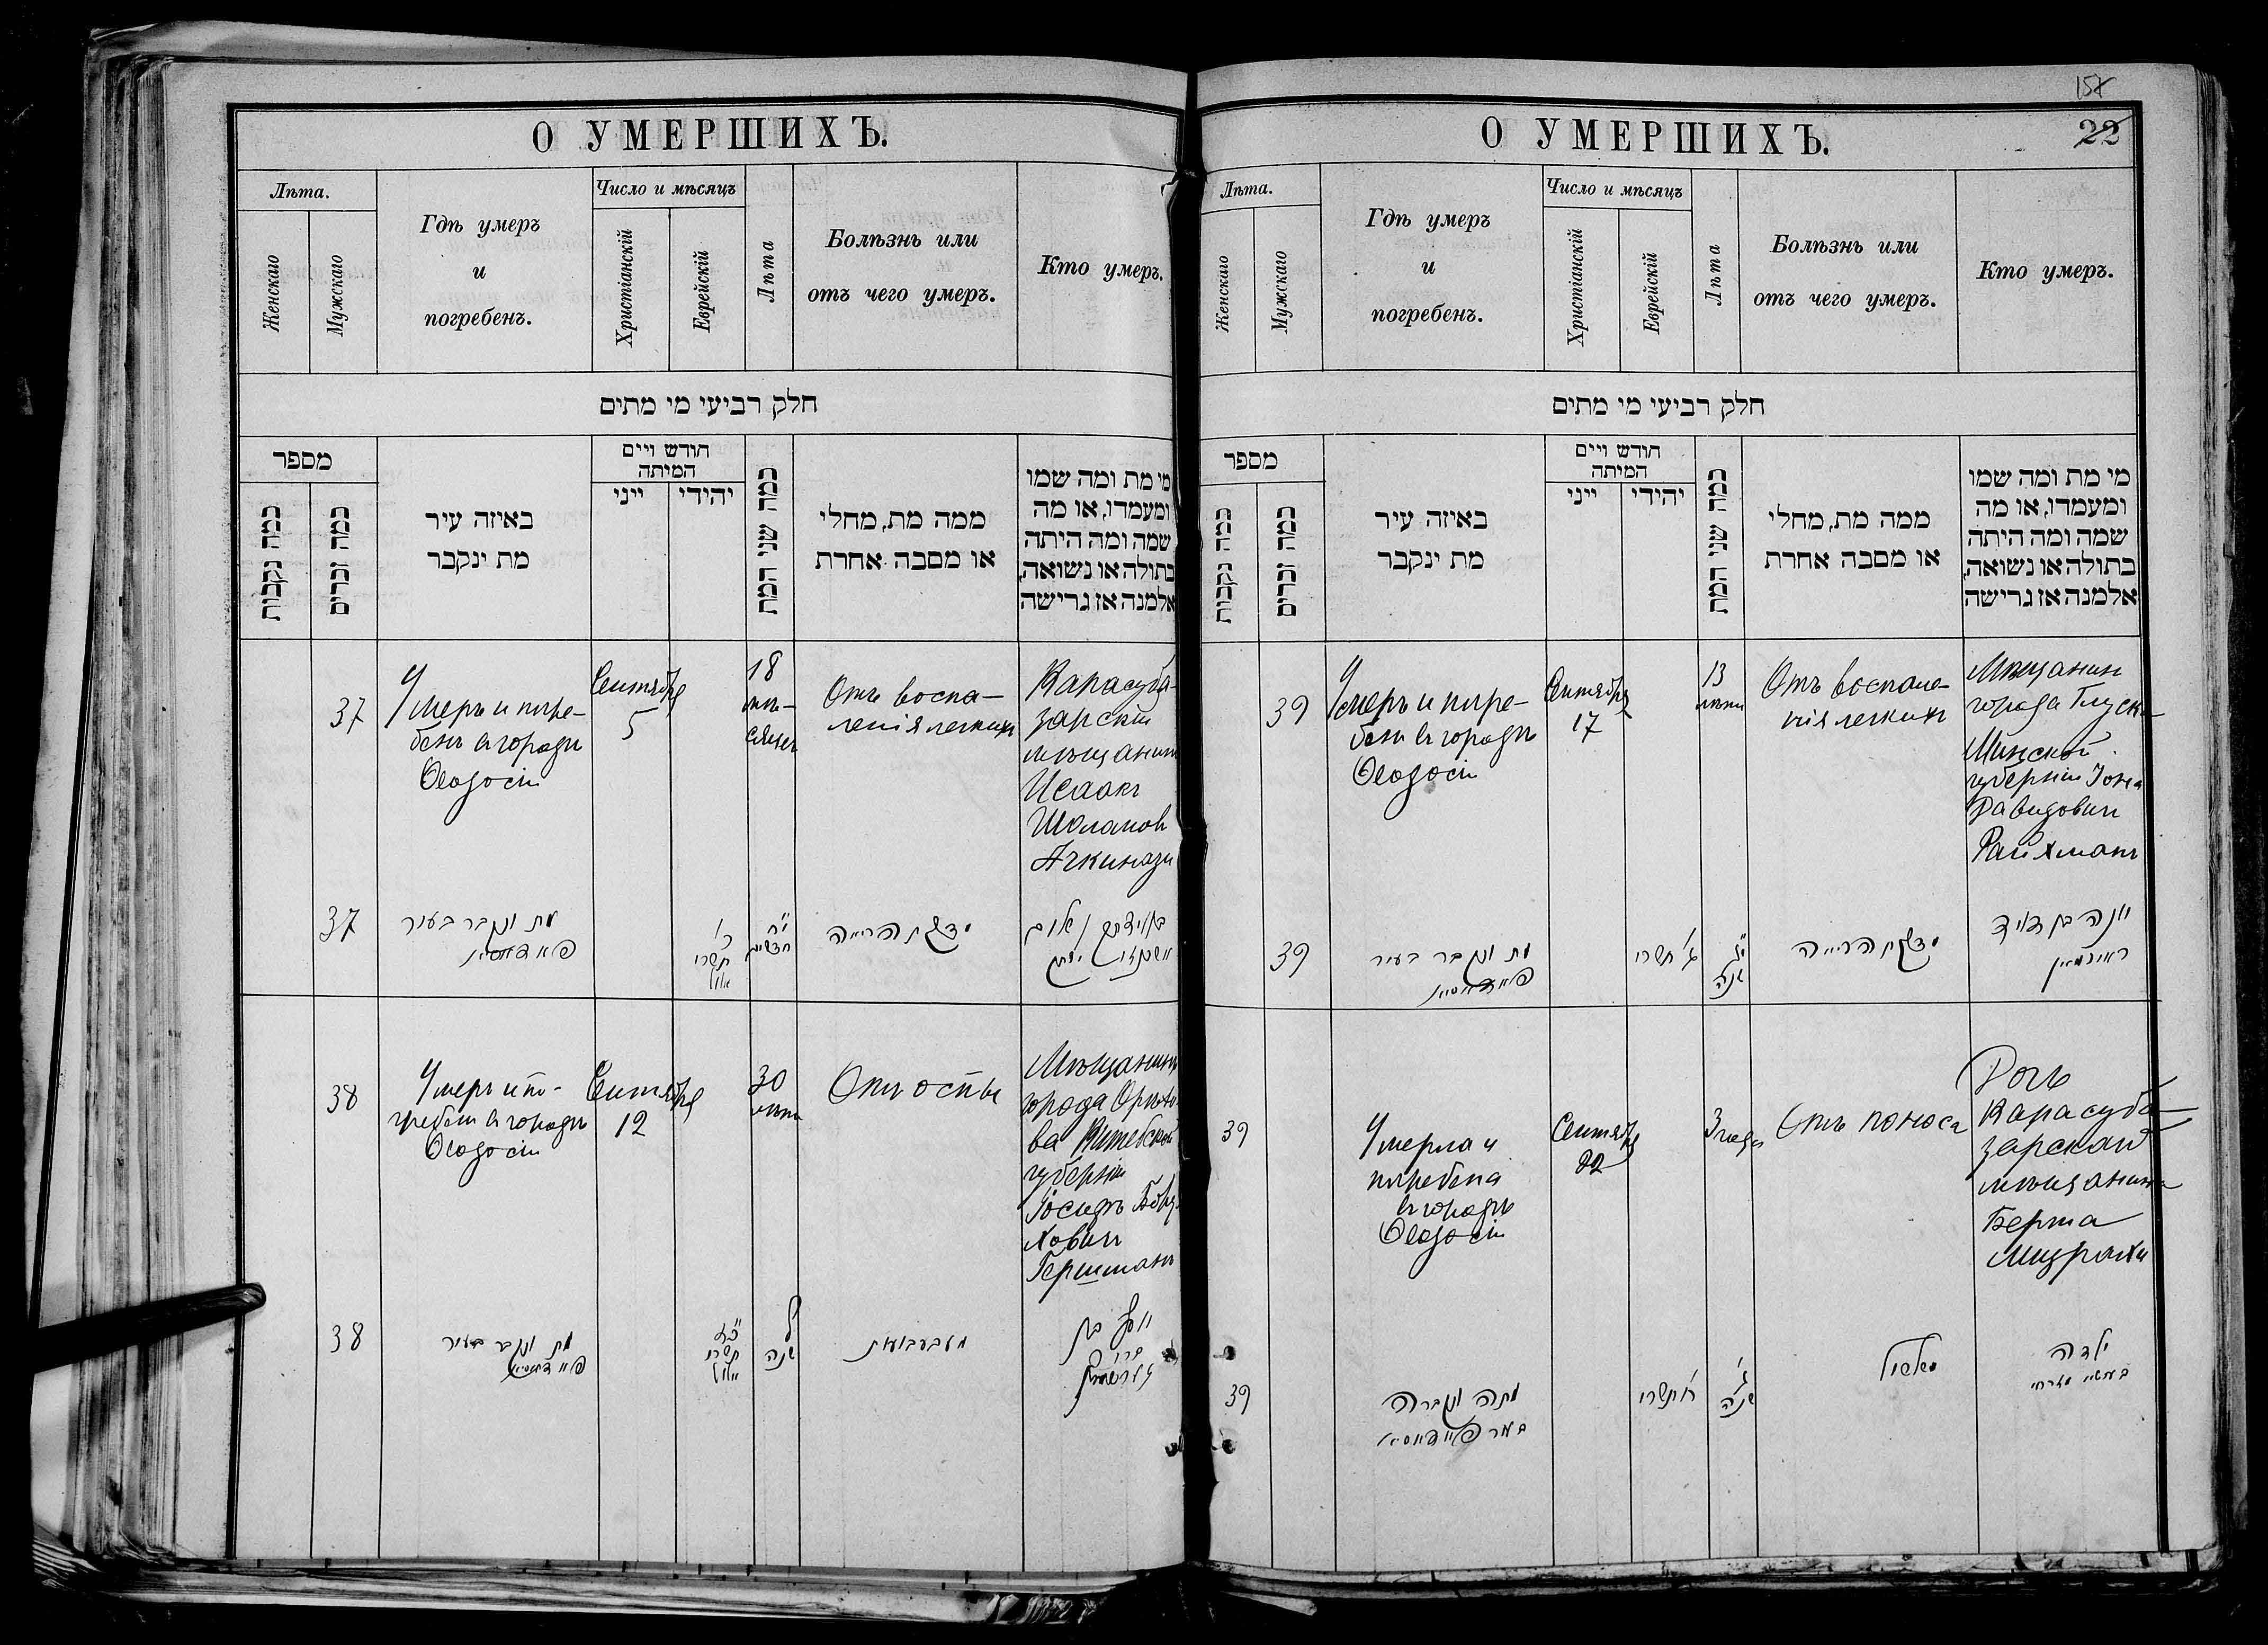 О УМЕРШИХЪ.
Лѣта.
Женскаго
Мужскаго
Гдѣ умеръ
и
погребенъ.
Число и мѣсяцъ
Христіанскій
Еврейскій
Лѣта
Болѣзнь или
отъ чего умеръ.
Кто умеръ.
חלק רביעי מי מתים
מספר
כמה נקבות
כמה זכרים
באיזה עיר
מת ינקבר
חודש ויים
המיתה
ייני
יהודי
כמה שני המת
ממה מת, מחלי
או מסבה אחרת
מי מת ומה שמו
ומעמדו, או מה
שמה ומה היתה
בתולה או נשואה,
אלמנה אז גרישה
37
Умеръ и погре-
бенъ въ городѣ
Ѳеодосіи
Сентября
5
18
мѣ-
сяцевъ
Отъ воспа-
ленія легкихъ
Карасуба-
зарскій
мѣщанинъ
Исаакъ
Шоломов
Ачкинази
37
מת ונקבר בעיר
תשרי
י״ח
חדשים
הריאה
38
Умеръ и по-
гребенъ въ городѣ
Ѳеодосіи
Сентября
12
30
лѣтъ
Отъ оспы
Мѣщанинъ
города
Витебской
губерніи
Іосифъ
ховичъ
Гершманъ
38
מת ונקבר בעיר
תשרי
ל׳
שנה
מאבעבועות
יוסף בן
15
О УМЕРШИХЪ.
22
Лѣта.
Женскаго
Мужскаго
Гдѣ умеръ
и
погребенъ.
Число и мѣсяцъ
Христіанскій
Еврейскій
Лѣта
Болѣзнь или
отъ чего умеръ.
Кто умеръ.
חלק רביעי מי מתים
מספר
כמה נקבות
כמה זכרים
באיזה עיר
מת ינקבר
חודש ויים
המיתה
ייני
יהודי
כמה שני המת
ממה מת, מחלי
או מסבה אחרת
מי מת ומה שמו
ומעמדו, או מה
שמה ומה היתה
בתולה או נשואה,
אלמנה אז גרישה
39
Умеръ и погре-
бенъ въ городѣ
Ѳеодосіи
Сентября
17
13
лѣтъ
Отъ воспале-
нія легкихъ
Мѣщанинъ
города Глуска
Минской
губерніи Іона
Давидович
Райхманъ
39
מת ונקבר בעיר
תשרי
שנה
הריאה
יונה בן דוד
39
Умерла и
погребена
въ городѣ
Ѳеодосіи
Сентября
22
3 года
Отъ поноса
Дочь
Карасуба-
зарскаго
мѣщанина
Берта
Мизрахи
39
מתה ונקברה
בעיר
תשרי
ג׳
שנה
ילדה